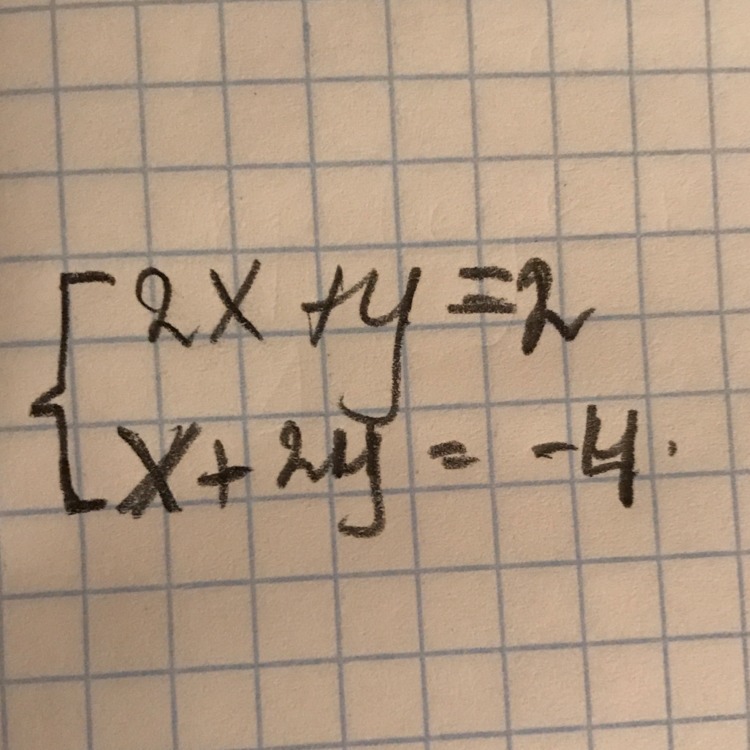 2x + y = 2
x + 2y = -4.